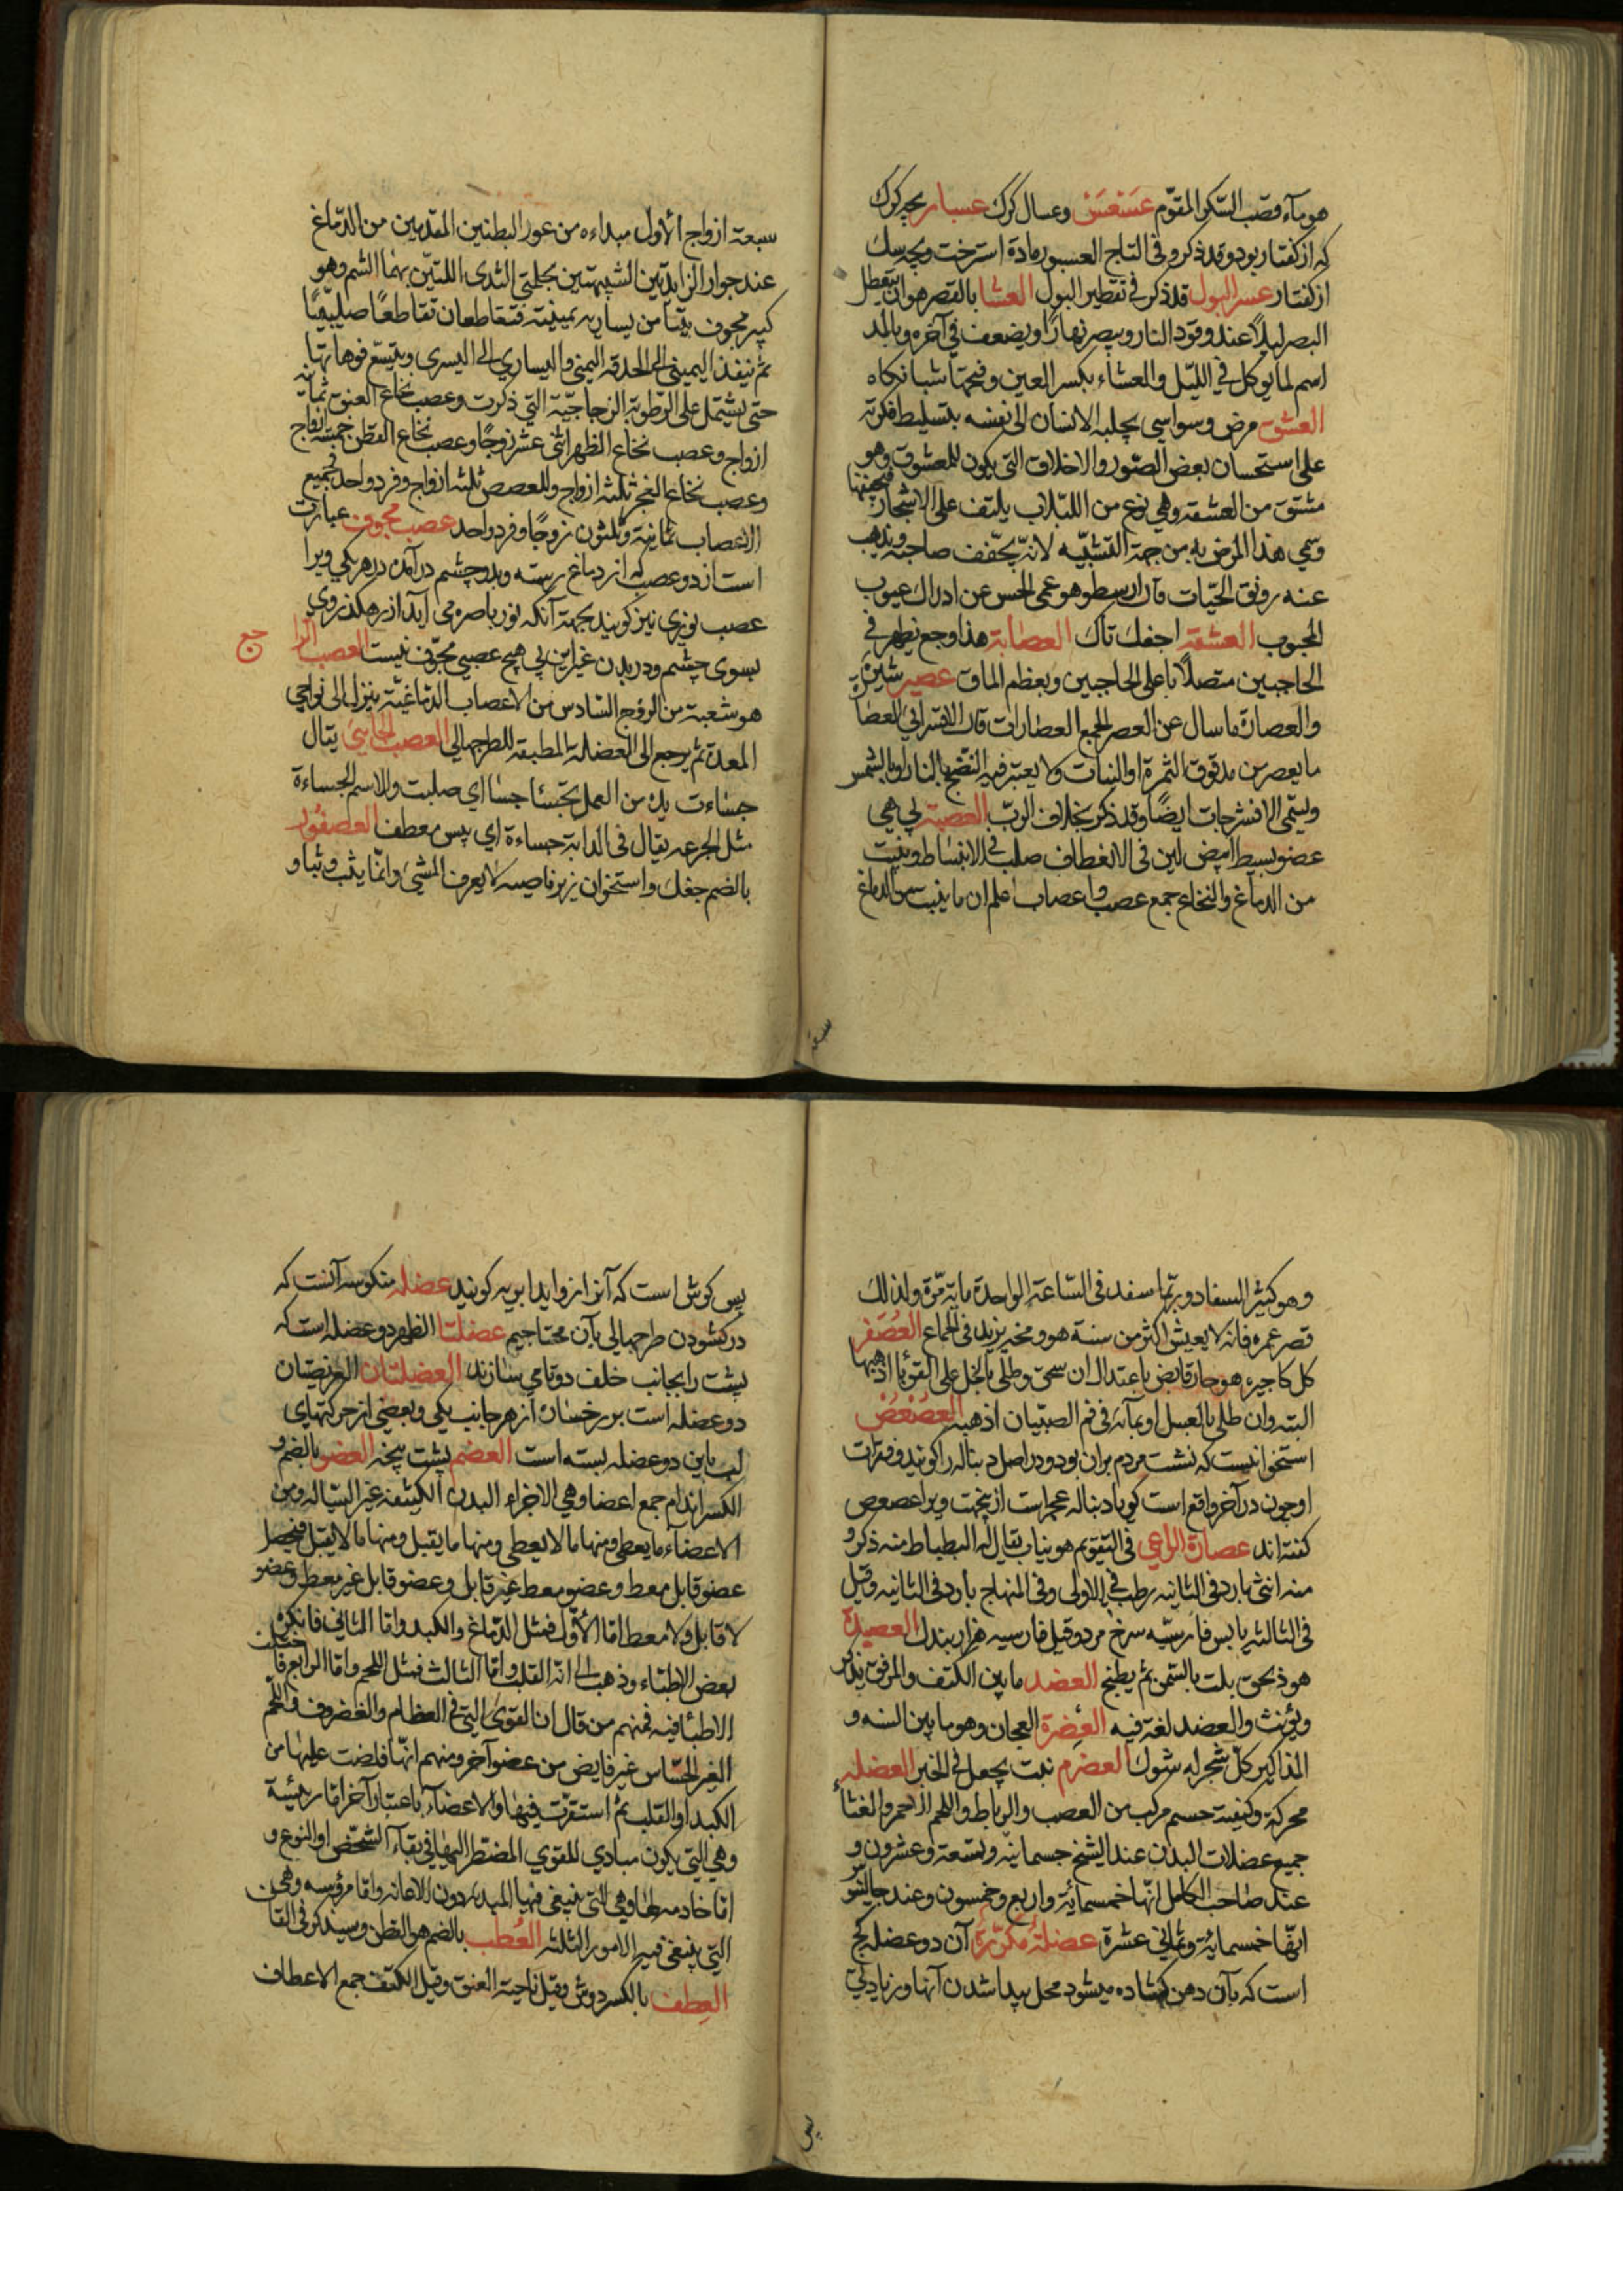 هو مآء قصب السّكر المقوّم عَسَعَسَ وعسال كرك عسبار بچه كرك
كه از كفتار بود وقد ذكر وفى التاج العسبور مادة استرخت وبچه سك
از كفتار عسر البول قد ذكر فى تقطير البول العشا بالقصر هو ان يتعطل
البصر ليلاً عند وقود النار ويبصر نهارًا ويضعف فى آخره وبالمد
اسم لما يوكل فى الليّل والعشاء بكسر العين وفتحها شبانكاه
العشق مرض وسواسي يجلبه الانسان الى نفسه بتسليط فكرته
على استحسان بعض الصّور والاخلاق التى يكون للمعشوق وهو
مشتق من العشقة وهى نوع من اللبلاب يلتف على الاشجار فيجففها
وسمي هذا المرض به من جهة التشبيه لانه يجفف صاحبه ويذهب
عنه رونق الحيات قال ارسطو هو عمى الحس عن ادراك عيوب
المحبوب العشقة اجفك تاك العصابة هذا وجع يظهر فى
الحاجبين متصلاً باعلى الحاجبين وبعظم الماق عصير شيرة
والعصارة ما سال عن العصر الجمع العصارات قال الاقسرائي العصا
ما يعصر من مدقوق الثمرة او النبات ولا يعتبر فيه النضج بالنار او بالشمس
وليسمى الافشرجات ايضًا وقد ذكر بخلاف الربّ العصبة پى هى
عضو بسيط ابيض لين فى الانعطاف صلب فى الانبساط وينبت
من الدماغ والنخاع جمع عصب واعصاب اعلم ان ما ينبت من الدماغ
سبعة
سبعة ازواج الأول مبداءه من غور البطنين المقدمين من الدّماغ
عند جوار الزايدتين الشبيهتين بحلمتى الثدى اللتيّن بهما الشم وهو
كبير مجوف يتيامن يساريه يمينيته فتقاطعان تقاطعًا صليبيًا
ثم ينفذ اليمينى الى الحدقه اليمنى واليساري الى اليسرى ويتسع فوهاتها
حتى يشتمل على الرّطوبة الزجاجيّة التي ذكرت وعصب نخاع العنق ثمانية
ازواج وعصب نخاع الظهر اثنى عشر زوجًا وعصب نخاع القطن خمسة ازواج
وعصب نخاع العجز ثلثه ازواج وللعصص ثلثه ازواج وفرد واحد فجميع
الاعصاب ثمانية وثلثون زوجًا وفرد واحد عصب مجوف عبارت
است از دو عصب كه از دماغ رسته وبدو چشم در آمده در هر يكى ويرا
عصب نورى نيز كويند بجهة آنكه نور باصره مى آيد از رهكذر وي
بسوى چشم ودر بدن غير اين پى هيچ عصبى مجوف نيست العصب الرا
جع
هو شعبة من الزوج السّادس من الاعصاب الدّماغيّة ينزل الى نواحي
المعدة ثم يرجع الى العضلة المطبقة للطرجهالى العصب الجاسى يقال
جساءت يده من العمل تجسئا جسا اى صلبت والاسم الجساءة
مثل الجرعه يقال فى الدابة جساءة اي يبس معطف العصفُور
بالضم جغك واستخوان زير ناصيه لا يعرف المشى وانمّا يثب وثبا و
وهو كثير السفاد وربمّا سفد فى السّاعة الواحدة ماية مرّة ولذلك
قصر عمره فانه لا يعيش اكثر من سنة هو ومخيه يزيد فى الجماع العُصْفر
كل كاجيره هو حار قابض باعتدال ان سحق وطلى بالخل على القوبا اذهبها
البتة وان طلى بالعسل او بمآئه فى فم الصبيّان اذهبه العصْعُصْ
استخوانيست كه نشست مردم بران بود ودر اصل دنباله را كويند وفقرات
او چون در آخر واقع است كويا دنباله عجز است ازين جهت ويرا عصعص
كفته اند عصارة الراعي فى التقويم هو نبات يقال له البطباط منه ذكر و
منه انثى بارد فى الثانيه رطب فى الاولى وفى المنهاج بارد فى الثانيه وقيل
فى الثالثه يابس فارسيّه سرخ مرد وقيل فارسيه هزار بندك العصيدة
هو دقيق يلت بالسّمن ثم يطبخ العضد ما بين الكتف والمرفق يذكر
ويؤنث والعضد لغة فيه العِضرة العجان وهو ما بين السته و
المذاكير كلّ شجر له شوك العضرم نبت يجعل فى الخبز العضله
محركة وكيفية جسم مركب من العصب والرباط واللحم الاحمر والغشا
جميع عضلات البدن عند الشيخ خسمايّه وتسعة وعشرون و
عند صاحب الكامل انها خمسمائة واربع وخمسون وعند جالينوس
انها خمسمايه وثمانى عشرة عضلهُ مكرّرة آن دو عضله كج
است كه بآن دهن كشاده ميشود محل پيدا شدن آنها از زيادتى
پس
پس كوش است كه آنرا زوايد ابريه كويند عضله منكوسه آنست كه
در كشودن طرجهالى بآن محتاجيم عضلتا الظهر دو عضله است كه
پشت را بجانب خلف دوتا مي سازند العضلتان العريضتان
دو عضله است بر رخساره از هر جانب يكى وبعضى از حركتهاى
لب باين دو عضله بسته است العضم پشت پنجه العضو بالضم و
الكسر اندام جمع اعضا وهي الاجزاء البدن الكثيفة غير السّياله ومن
الاعضآء ما يعطى ومنها ما لا يعطى ومنها ما يقبل ومنها ما لا يقبل فيحصل
عضو قابل معط وعضو معط غير قابل وعضو قابل غير معط وعضو
لا قابل ولا معط امّا الأوّل فمثل الدّماغ والكبد وامّا الثانى فانكره
بعض الاطبّاء وذهب الى انه القلب وامّا الثالث فمثل اللحم وامّا الرابع فاختلف
الاطبّا فيه فمنهم من قال ان القوى التى فى العظام والغضروف واللحم
الغير الحسّاس غير فايض من عضو آخر ومنهم انها فاضت عليها من
الكبد او القلب ثم استقرّت فيها والاعضآء باعتبار آخر امّا رئيسة
وهي التي يكون مبادي للقوي المضطر اليها فى بقآء الشخص او النوع و
امّا خادمه لها وهى التى ينبغى فيها المبدء دون الاعانه وامّا مرؤسه وهي
التي ينبغى فيه الامور الثلثه العُطب بالضم هو القطن وسيذكر فى القا
العِطف بالكسر دوش وقيل ناحية العنق وقيل الكتف جمع الاعطاف